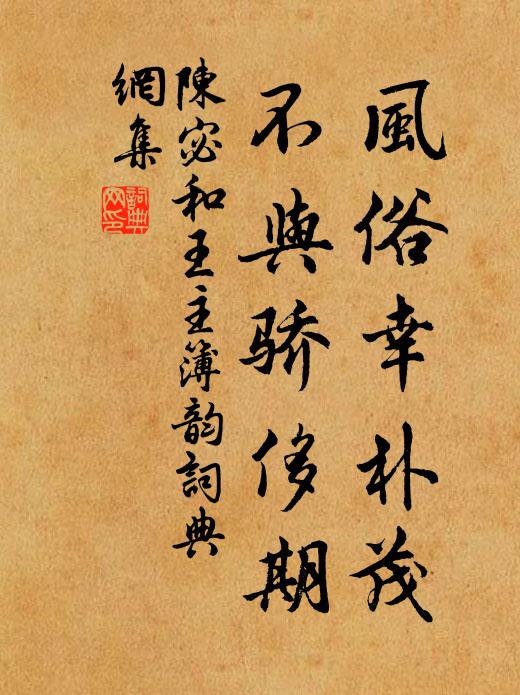 風俗幸朴茂
不與骄侈期
陳宓和王主簿韵詞典
網集
詞典
网印